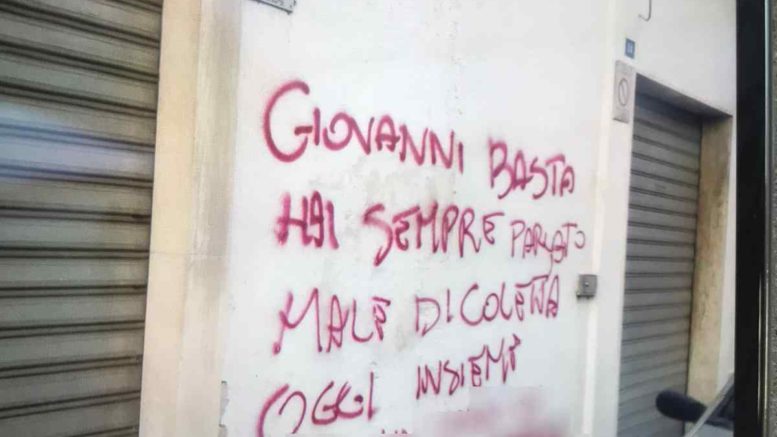 GIOVANNI BASTA
HAI SEMPRE PARLATO
MALE DI COLETTA
OGGI INSIEME